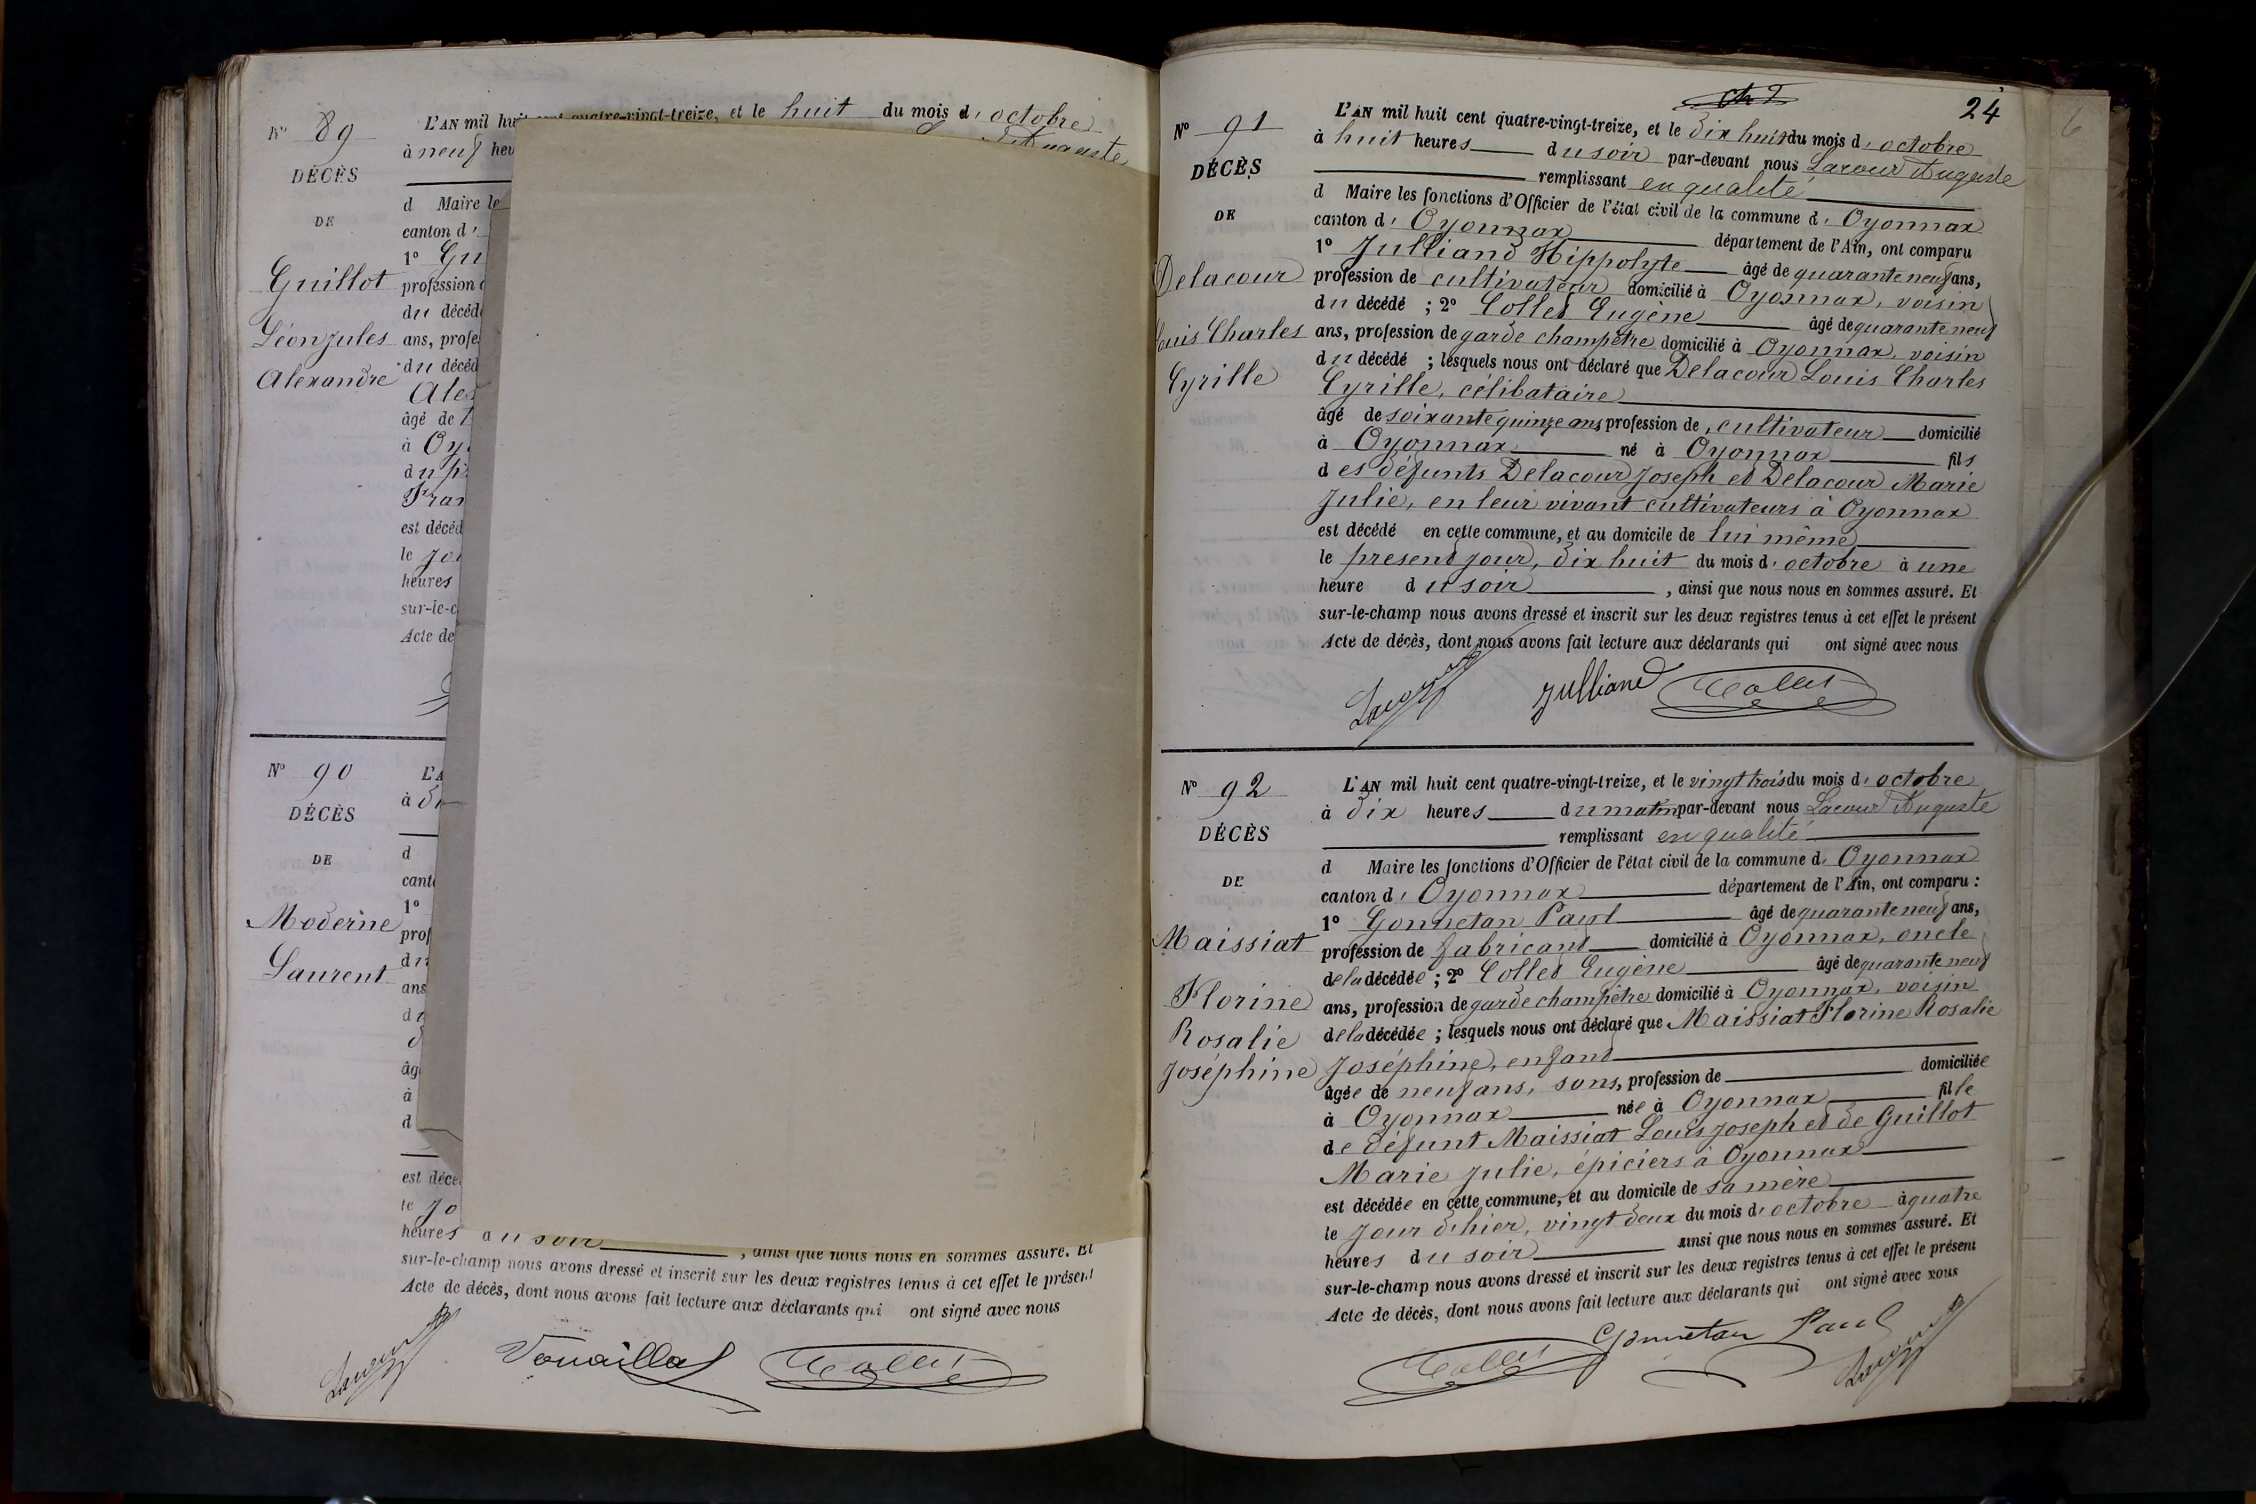 N° 89
DÉCÈS
DE
Guillot
Léon Jules
Alexandre
L'AN mil huit cent quatre-vingt-treize, et le huit du mois d'octobre
à neuf heu
Auguste
d Maire le
canton d'
1° Gu
profession d
du décéd
ans, profe
du décéd
Alex
âgé de t
à Oyo
du p
Fran
est décéd
le jo
heures
sur-le-c
Acte de
N° 90
DÉCÈS
DE
Moderne
Laurent
L'A
à di
d
cant
1°
prof
du
ans
du
d
âg
à
d
est décé
le jo
heures du soir , ainsi que nous nous en sommes assuré. Et
sur-le-champ nous avons dressé et inscrit sur les deux registres tenus à cet effet le présent
Acte de décès, dont nous avons fait lecture aux déclarants qui ont signé avec nous
Lacour Vouaillat Collet
24
N° 91
DÉCÈS
DE
Delacour
Louis Charles
Cyrille
L'AN mil huit cent quatre-vingt-treize, et le dix huit du mois d'octobre
à huit heures du soir par-devant nous Lacour Auguste
remplissant en qualité
d Maire les fonctions d'Officier de l'état civil de la commune d'Oyonnax
canton d'Oyonnax département de l'Ain, ont comparu
1° Julliand Hippolyte âgé de quarante neuf ans,
profession de cultivateur domicilié à Oyonnax, voisin
du décédé ; 2° Collet Eugène âgé de quarante neuf
ans, profession de garde champêtre domicilié à Oyonnax, voisin
du décédé ; lesquels nous ont déclaré que Delacour Louis Charles
Cyrille, célibataire
âgé de soixante quinze ans profession de cultivateur domicilié
à Oyonnax né à Oyonnax fils
des défunts Delacour Joseph et Delacour Marie
Julie, en leur vivant cultivateurs à Oyonnax
est décédé en cette commune, et au domicile de lui même
le present jour, dix huit du mois d'octobre à une
heure du soir , ainsi que nous nous en sommes assuré. Et
sur-le-champ nous avons dressé et inscrit sur les deux registres tenus à cet effet le présent
Acte de décès, dont nous avons fait lecture aux déclarants qui ont signé avec nous
Lacour Julliand Collet
N° 92
DÉCÈS
DE
Maissiat
Florine
Rosalie
Joséphine
L'AN mil huit cent quatre-vingt-treize, et le vingt trois du mois d'octobre
à dix heures du matin par-devant nous Lacour Auguste
remplissant en qualité
d Maire les fonctions d'Officier de l'état civil de la commune d'Oyonnax
canton d'Oyonnax département de l'Ain, ont comparu :
1° Gonnetan Paul âgé de quarante neuf ans,
profession de fabricant domicilié à Oyonnax, oncle
de la décédée ; 2° Collet Eugène âgé de quarante neuf
ans, profession de garde champêtre domicilié à Oyonnax, voisin
de la décédée ; lesquels nous ont déclaré que Maissiat Florine Rosalie
Joséphine, enfant
âgée de neuf ans, sans, profession de domiciliée
à Oyonnax née à Oyonnax fille
de défunt Maissiat Louis Joseph et de Guillot
Marie Julie, épiciers à Oyonnax
est décédée en cette commune, et au domicile de sa mère
le jour d'hier, vingt deux du mois d'octobre à quatre
heures du soir ainsi que nous nous en sommes assuré. Et
sur-le-champ nous avons dressé et inscrit sur les deux registres tenus à cet effet le présent
Acte de décès, dont nous avons fait lecture aux déclarants qui ont signé avec nous
Collet Gonnetan Paul Lacour